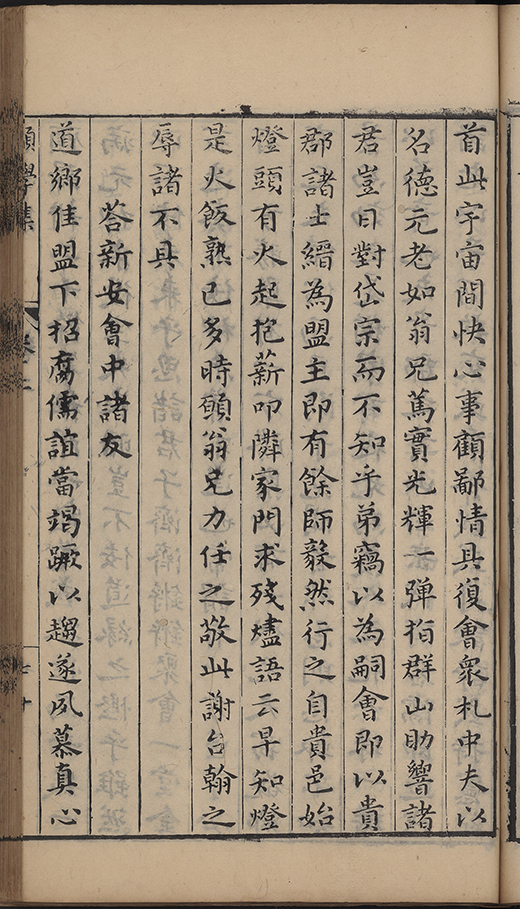 首此宇宙間快心事顧鄙情具復會衆札中夫以
名德元老如翁兄篤實光輝一弹指群山助響諸
君豈日對岱宗而不知乎弟竊以為嗣會即以貴
郡諸士縉為盟主即有餘師毅然行之自貴邑始
燈頭有火起抱薪叩隣家門求殘燼語云早知燈
是火飯熟已多時願翁兄力任之敬此謝台翰之
辱諸不具
荅新安會中諸友
道鄉佳盟下招腐儒誼當竭蹶以趨遂夙慕真心